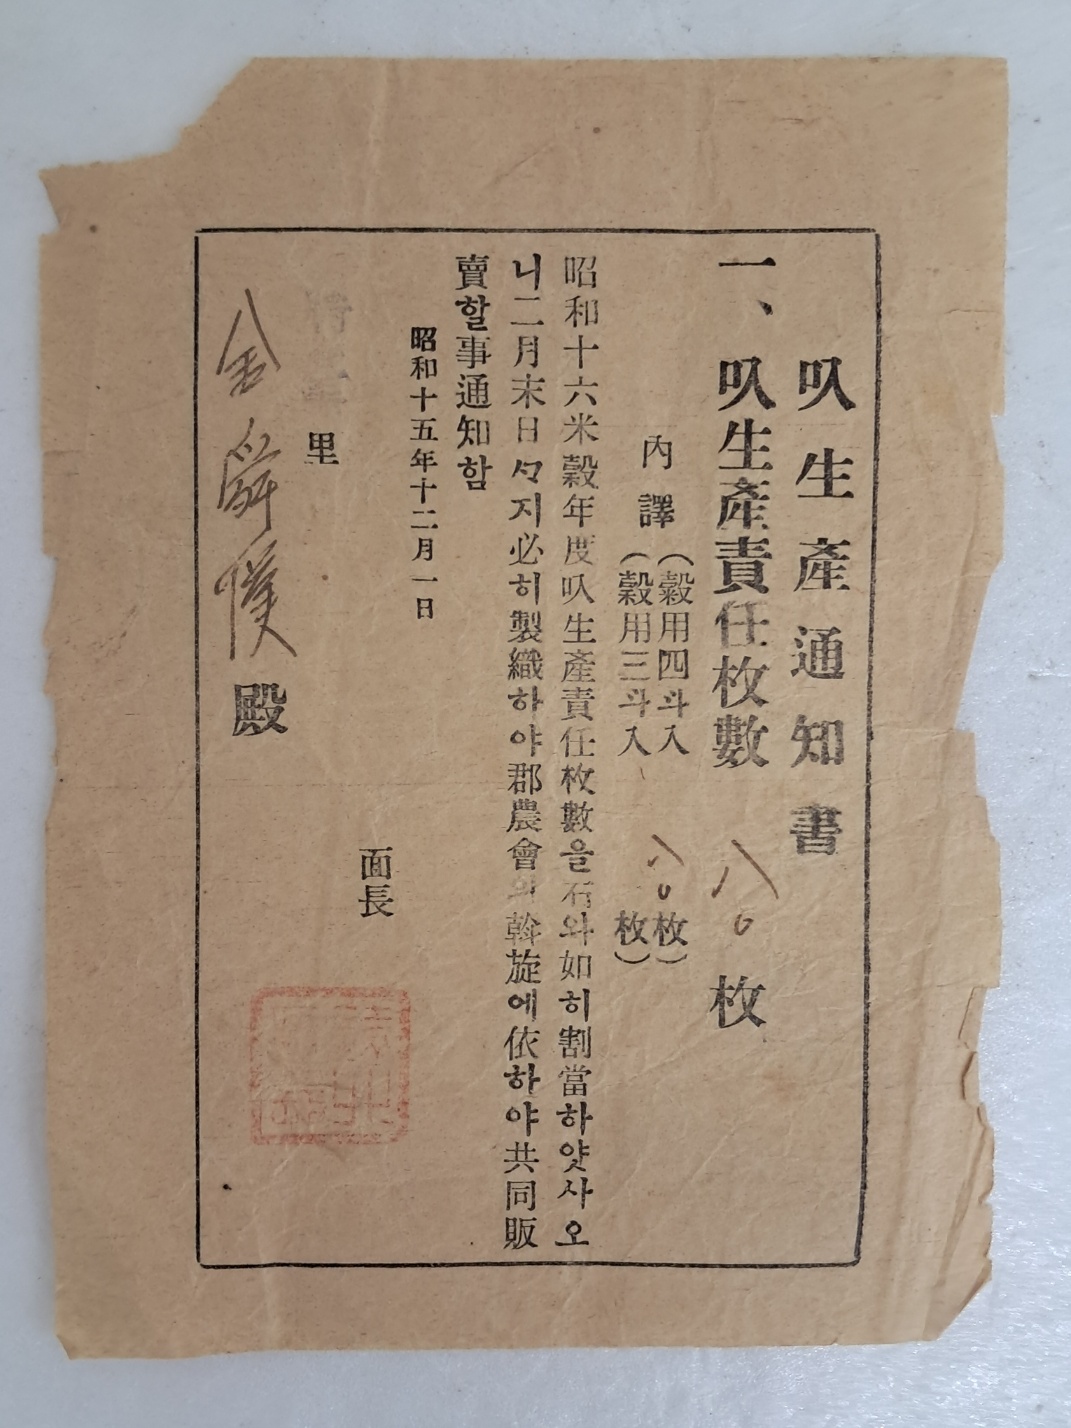 叺生產通知書
一、叺生產責任枚數 八〇枚
內譯
(穀用四斗入 八〇枚)
(穀用三斗入 枚)
昭和十六米穀年度叺生產責任枚數을右와如히割當하얏사오
니二月末日ᄭᆞ지必히製織하야郡農會의斡旋에依하야共同販
賣할事通知함
昭和十五年十二月一日
面長
里
金舜㒒殿